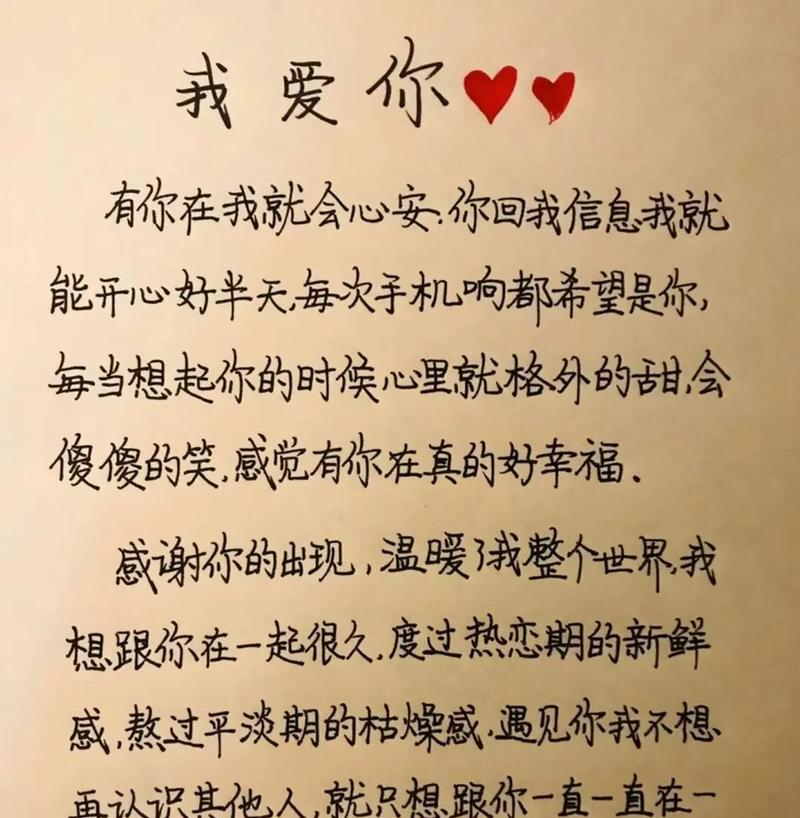 我爱你
有你在我就会心安.你回我信息我就
能开心好半天,每次手机响都希望是你,
每当想起你的时候心里就格外的甜,会
傻傻的笑,感觉有你在真的好幸福.
感谢你的出现,温暖了我整个世界,我
想跟你在一起很久,度过热恋期的新鲜
感,熬过平淡期的枯燥感.遇见你我不想
再认识其他人,就只想跟你一直一直在一